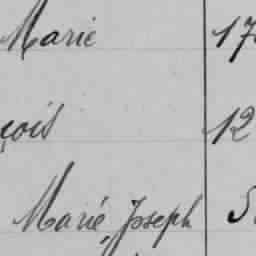 Marie 17
çois 12
Marie, Joseph 5